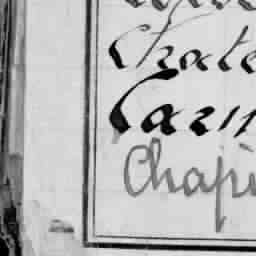 Chate
Carn
Chapi